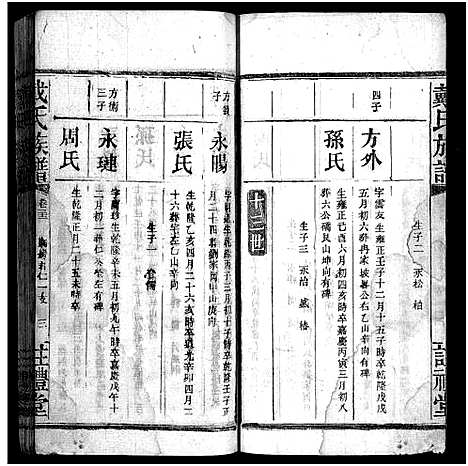 戴氏族譜
註禮堂
四子
方外
字雲友生雍正壬子十二月十五子時卒乾隆戊戌
五月初六葬冉家坡暑公右乙山辛向有碑
生子二 永松 柏
孫氏
生雍正己酉六月初四亥時卒嘉慶丙寅三月初八
葬六公礄艮山坤向有碑
生子三 永柏 盛 椿
十三世
方
子
永賜
月二十四葬劉家 甲山庚向
張氏
生乾隆乙亥四月二十六亥時卒道光辛卯四月二
十六葬宅左乙山辛向
生子二
方衛
三子
永璉
字廟珍生乾隆辛未五月初九午時卒嘉慶戊午十
二月初一葬仁公塋左有碑
周氏
生乾隆 正月二十五未時卒
戴氏族譜
卷三
三
註禮堂